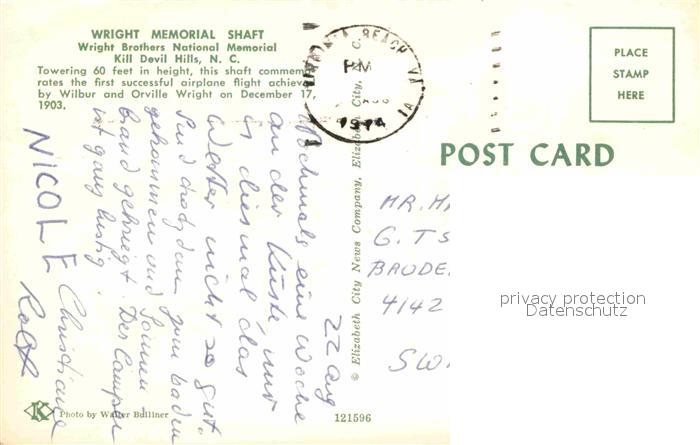 WRIGHT MEMORIAL SHAFT
Wright Brothers National Memorial
Kill Devil Hills, N. C.
Towering 60 feet in height, this shaft commem
rates the first successful airplane flight achiev
by Wilbur and Orville Wright on December 17,
1903.
22 Aug
Nochmals eine Woche
an der Küste nur
ist diesmal das
Wetter nicht so gut.
Sind trotzdem zum baden
gekommen und Sonnen-
brand gekriegt. Der Camper
ist ganz lustig.
Christiane
NICOLE
Rolf
K
Photo by Walter Bulliner
121596
© Elizabeth City News Company, Elizabeth City, N. C.
BEACH VA
PM
1974
PLACE
STAMP
HERE
POST CARD
MR. H
G. TS
BAUDE
4142
SW
privacy protection
Datenschutz